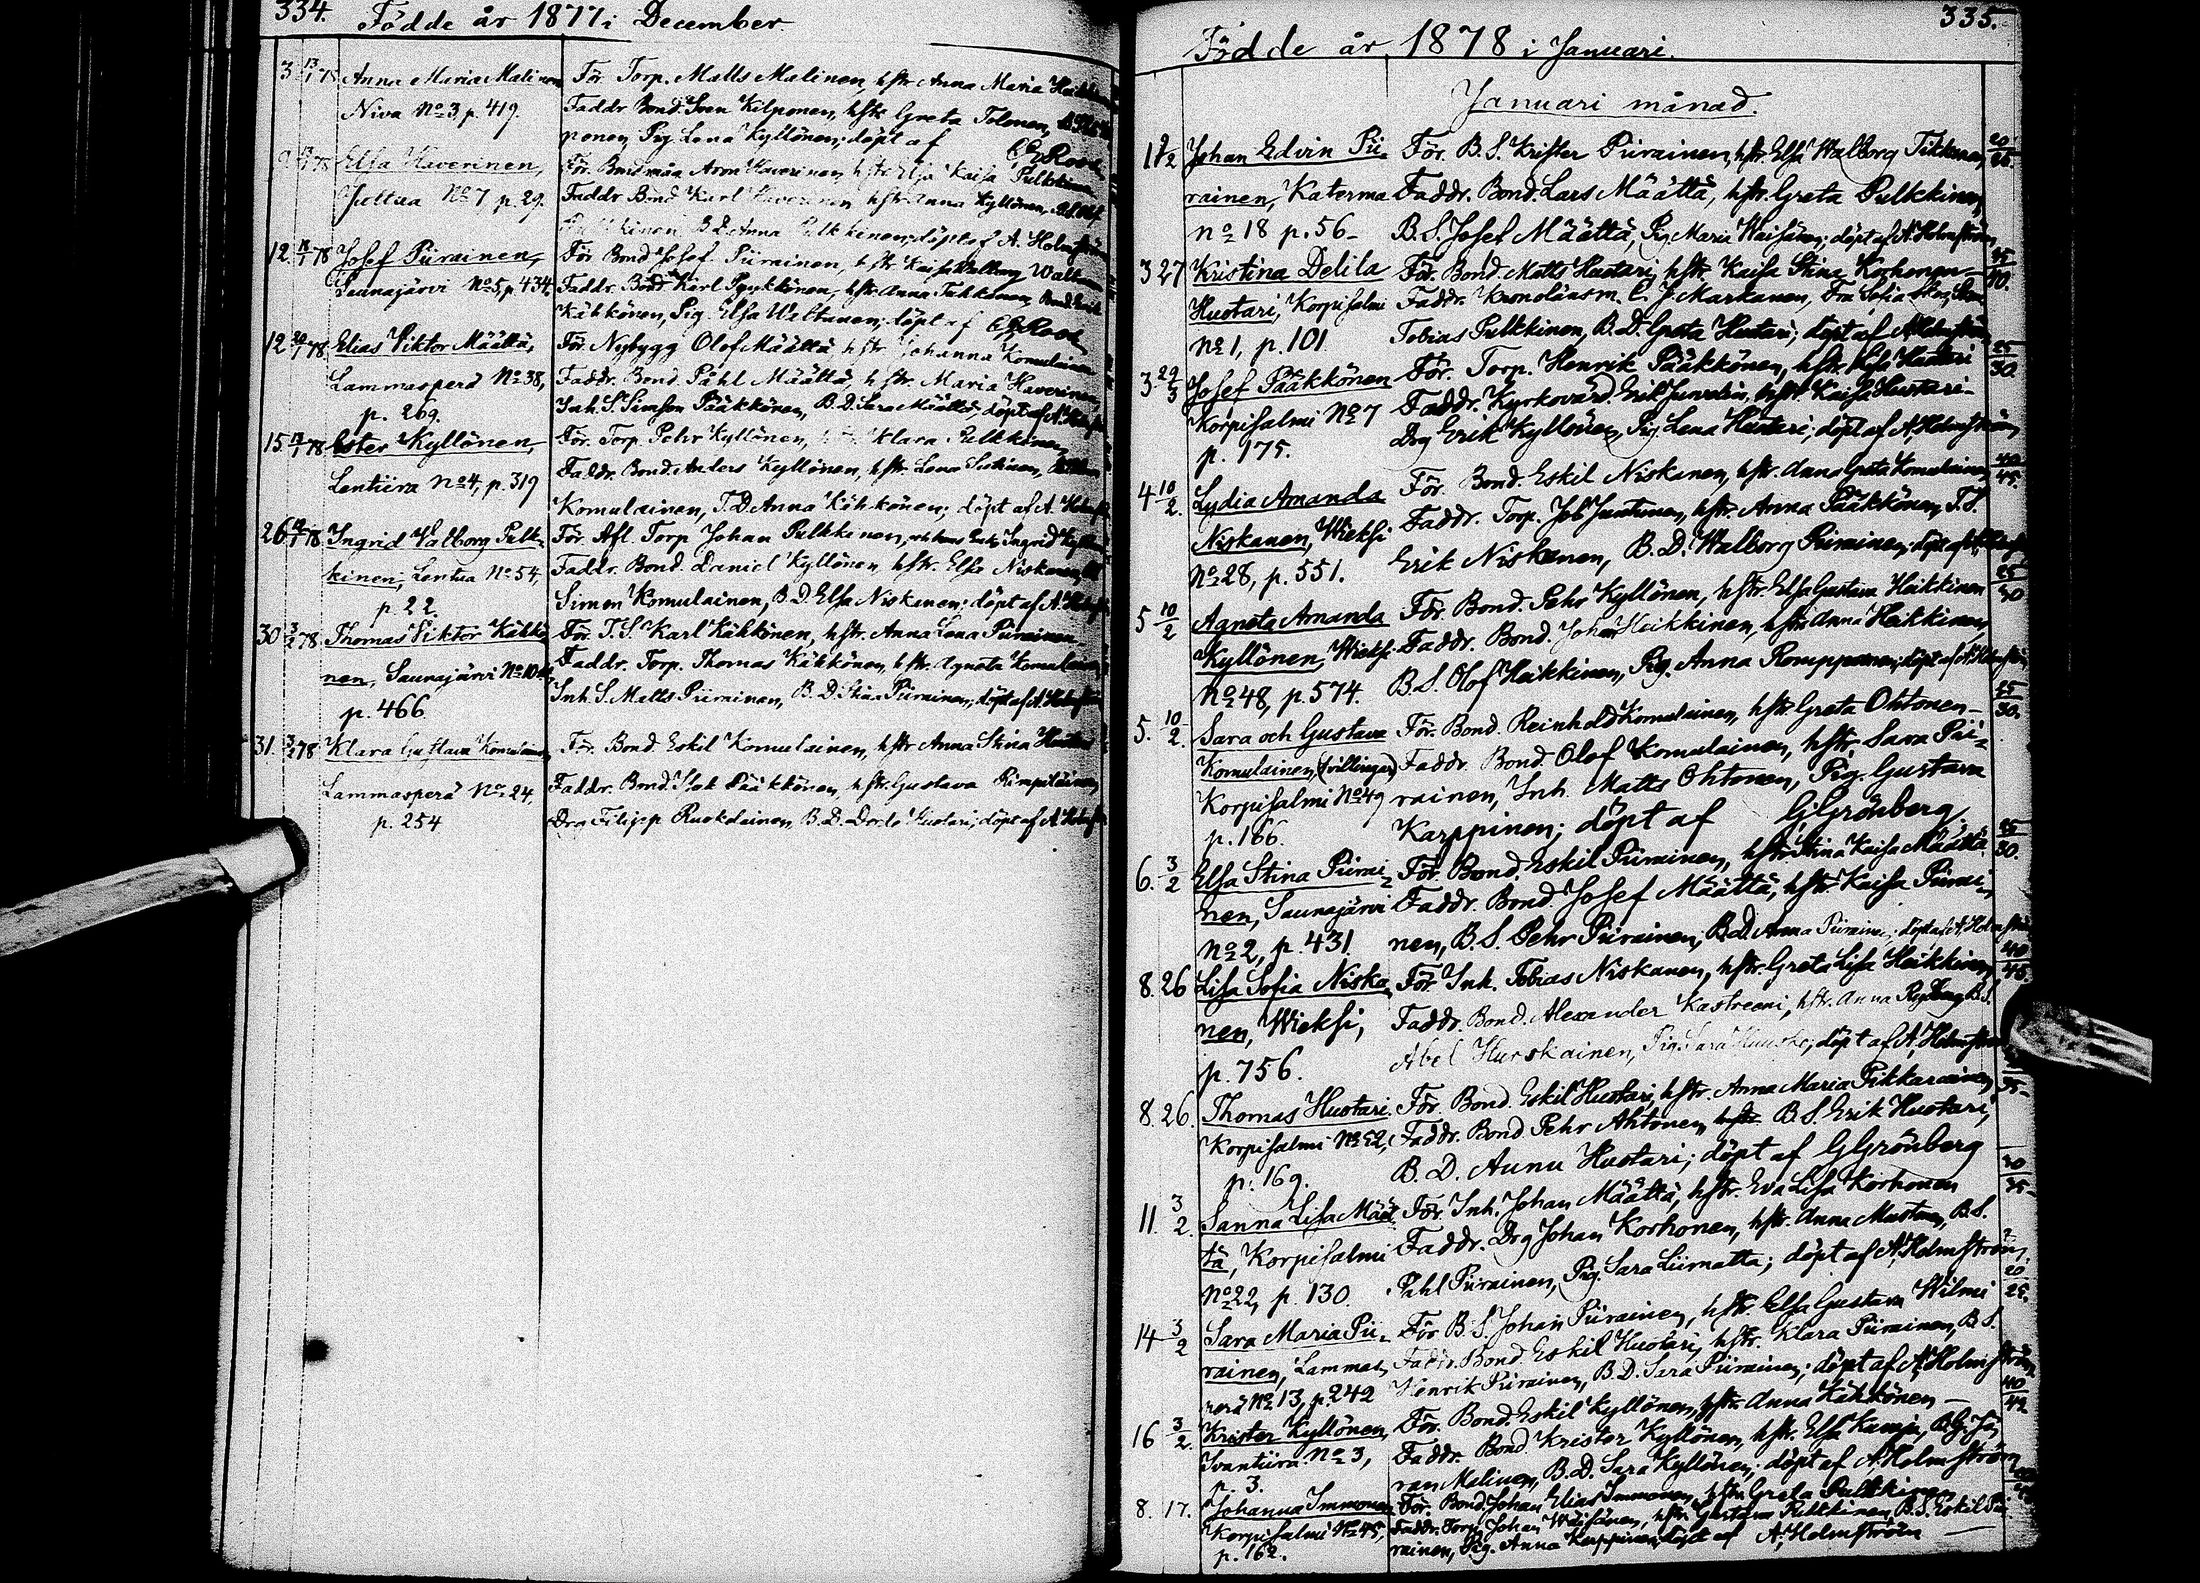 334. Födde år 1877 i December.
3 13/1 78 Anna Maria Malinen För. Torp. Matts Malinen, hstr Anna Maria
Niva No 3, p. 419. Faddr Bond. Sven Kilponen, hstr Greta Tolonen,
ponen, Pig Lena Kyllönen; döpt af CGRoos
78 Elsa Haverinen, För. Bondmåg Aron Haverinen, hstr Elsa Kaisa Pulkkinen
No 7, p. 29. Faddr Bond Karl Haverinen hstr Anna Kyllönen, B.S. Olof
Pulkkinen B.D. Anna Pulkkinen; döpt af A. Holmström
12. 78 Josef Piirainen, För Bond Josef Piirainen, hstr Kaisa Walborg
Saunajärvi No 5, p. 434. Faddr. Bond Karl Pyykkönen, hstr. Anna
Kähkönen, Pig. Elsa Waltanen; döpt af CGRoos
12 20/1 78 Elias Viktor Määttä, För Nybygg Olof Määttä hstr Johanna Komulainen
Lammasperä No 38, Faddr. Bond. Påhl Määttä, hstr. Maria Haverinen,
p. 269. Inh. S. Simson Pääkkönen, B.D. Sara Määttä; döpt af A. Holmstr
15. 78 Ester Kyllönen, För. Torp. Pehr Kyllönen, hstr Klara Pulkkinen,
Lentiira No 4, p. 319 Faddr. Bond. Anders Kyllönen, hstr. Lena
Komulainen, T.D. Anna Kähkönen; döpt af A. Holmstr
26 78 Ingrid Valborg Pulk- För Afl. Torp Johan Pulkkinen, Ingrid
kinen; Lentua No 54, Faddr. Bond. Daniel Kyllönen hstr. Elsa Niskanen,
p. 22. Simon Komulainen, B.D. Elsa Niskanen; döpt af A. Holmst
30 3/2 78 Thomas Viktor Kähkö- För. T.S. Karl Kähkönen, hstr. Anna Lena Piirainen
nen, Saunajärvi No 10 Faddr. Torp. Thomas Kähkönen, hstr. Agneta Komulainen,
p. 466. Inh. S. Matts Piirainen, B.D. Stina Piirainen; döpt af A. Holmstr
31. 3/2 78 Klara Gustava Komulainen För. Bond. Eskil Komulainen, hstr Anna Stina
Lammasperä No 24, Faddr. Bond. Isak Pääkkönen, hstr. Gustava Pimpiläinen,
p. 254 Drg Filipp Ruokolainen, B.D. Huotari; döpt af A. Holmstr
335.
Födde år 1878 i Januari.
Januari månad.
1 Johan Edvin Pii- För. B.S. Krister Piirainen, hstr. Elsa Walborg Tikkanen,
rainen, Katerma Faddr. Bond. Lars Määttä, hstr. Greta Pulkkinen,
No 18 p. 56- B.S. Josef Määttä, Pig. Maria Waisänen; döpt af A. Holmström
3 27 Kristina Delila För. Bond. Matts Huotari, hstr Kaisa Stina Korhonen- 25/30.
Huotari, Korpisalmi Faddr. Kronolänsm. C. J. Markanen, Fru Sofia
No 1, p. 101. Tobias Pulkkinen, B.D. Greta Huotari; döpt af A. Holmström
3 Josef Pääkkönen För. Torp. Henrik Pääkkönen, hstr. Huotari 25/30.
Korpisalmi No 7 Faddr. Kyrkovärd. Erik Juntunen, hstr. Kaisa Huotari-
p. 175. Drg Erik Kyllönen, Pig. Lena Huotari; döpt af A. Holmström
4 10/2. Lydia Amanda För. Bond. Eskil Niskanen, hstr. Anna Greta Komulainen, 40/45.
Niskanen, Wieksi Faddr. Torp. Job Juntunen, hstr. Anna Pääkkönen, T.S.
No 28, p. 551. Erik Niskanen, B.D. Walborg Piirainen; döpt af A. Holmstr
5 10/2 Agneta Amanda För. Bond. Pehr Kyllönen, hstr. Elsa Gustava Heikkinen 25/30
Kyllönen, Wieksi Faddr. Bond. Johan Heikkinen, hstr. Anna Heikkinen,
No 48, p. 574. B.S. Olof Heikkinen, Pig. Anna Romppanen; döpt af A. Holmström
5. 10/2. Sara och Gustava För. Bond Reinhold Komulainen, hstr Greta Ohtonen- 25/30.
Komulainen, (tvillingar) Faddr. Bond Olof Komulainen, hstr. Sara Pii-
Korpisalmi No 49 rainen, Inh. Matts Ohtonen, Pig. Gustava
p. 166. Karppinen; döpt af GGrönberg.
6. 3/2 Elsa Stina Piirai- För. Bond. Eskil Piirainen, hstr Stina Kaisa Määttä. 25/30.
nen, Saunajärvi Faddr. Bond. Josef Määttä, hstr. Kaisa Piirai-
No 2, p. 431. nen, B.S. Pehr Piirainen, B.D. Anna Piirainen; döpt af A. Holmström
8. 26 Lisa Sofia Niska- För Inh. Tobias Niskanen, hstr. Greta Lisa Heikkinen, 40/45.
nen, Wieksi, Faddr. Bond. Alexander Kastreeni, hstr. Anna Ryyberg B.S.
p. 756. Abel Hurskainen, Pig. Sara; döpt af A. Holmström
8. 26. Thomas Huotari. För. Bond. Eskil Huotari, hstr. Anna Maria Pikkarainen, 35-
Korpisalmi No 52, Faddr. Bond. Pehr Ahtonen, B.S. Erik Huotari,
p. 169. B.D. Aunu Huotari; döpt af GGrönberg
11. 3/2. Sanna Lisa Määt- För. Inh. Johan Määttä, hstr. Eva Lisa Korhonen 30/35-
tä, Korpisalmi Faddr. Drg Johan Korhonen, hstr. Anna Mustonen, B.S.
No 22, p. 130. Påhl Piirainen, Pig. Sara Liimatta; döpt af A. Holmström,
14 3/2 Sara Maria Pii- För B.S. Johan Piirainen, hstr. Elsa Gustava Wilmi 20/25.
rainen, Lammas- Faddr. Bond Eskil Huotari, hstr. Klara Piirainen, B.S.
perä No 13, p. 242 Henrik Piirainen, B.D. Sara Piirainen; döpt af A. Holmström
16 3/2. Krister Kyllönen, För. Bond. Eskil Kyllönen, hstr Anna Kähkönen -
Ivantiira No 3, Faddr. Bond Krister Kyllönen, hstr. Elsa
p. 3. ran Malinen, B.D. Sara Kyllönen; döpt af A. Holmström
8. 17. Johanna Immonen För. Bond. Johan Elias Immonen, hstr Greta Pulkkinen
Korpisalmi No 45, Faddr. Torp. Johan Wäisänen, hstr. Gustava Pulkkinen, B.S. Eskil Pii-
p. 162. rainen, Pig. Anna Karppinen; döpt af A. Holmström